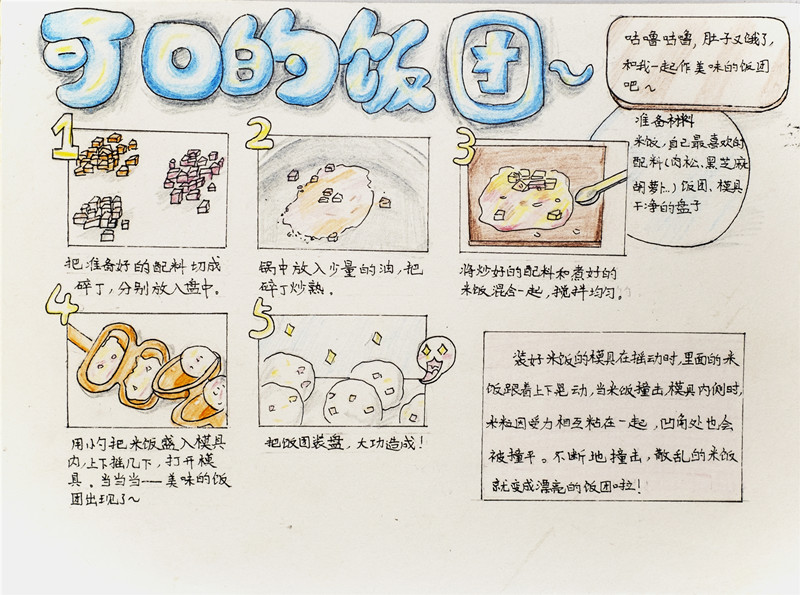 可口的饭团~
咕噜咕噜,肚子又饿了,
和我一起作美味的饭团
吧~
准备材料
米饭,自己最喜欢的
配料(肉松、黑芝麻
胡萝卜..)饭团、模具
干净的盘子
1
把准备好的配料切成
碎丁,分别放入盘中。
2
锅中放入少量的油,把
碎丁炒熟。
3
将炒好的配料和煮好的
米饭混合一起,搅拌均匀。
4
用小勺把米饭盛入模具
内,上下摇几下,打开模
具。当当当——美味的饭
团出现了~
5
把饭团装盘,大功造成!
装好米饭的模具在摇动时,里面的米
饭跟着上下晃动,当米饭撞击模具内侧时,
米粒因受力相互粘在一起,凹角处也会
被撞平。不断地撞击,散乱的米饭
就变成漂亮的饭团啦!